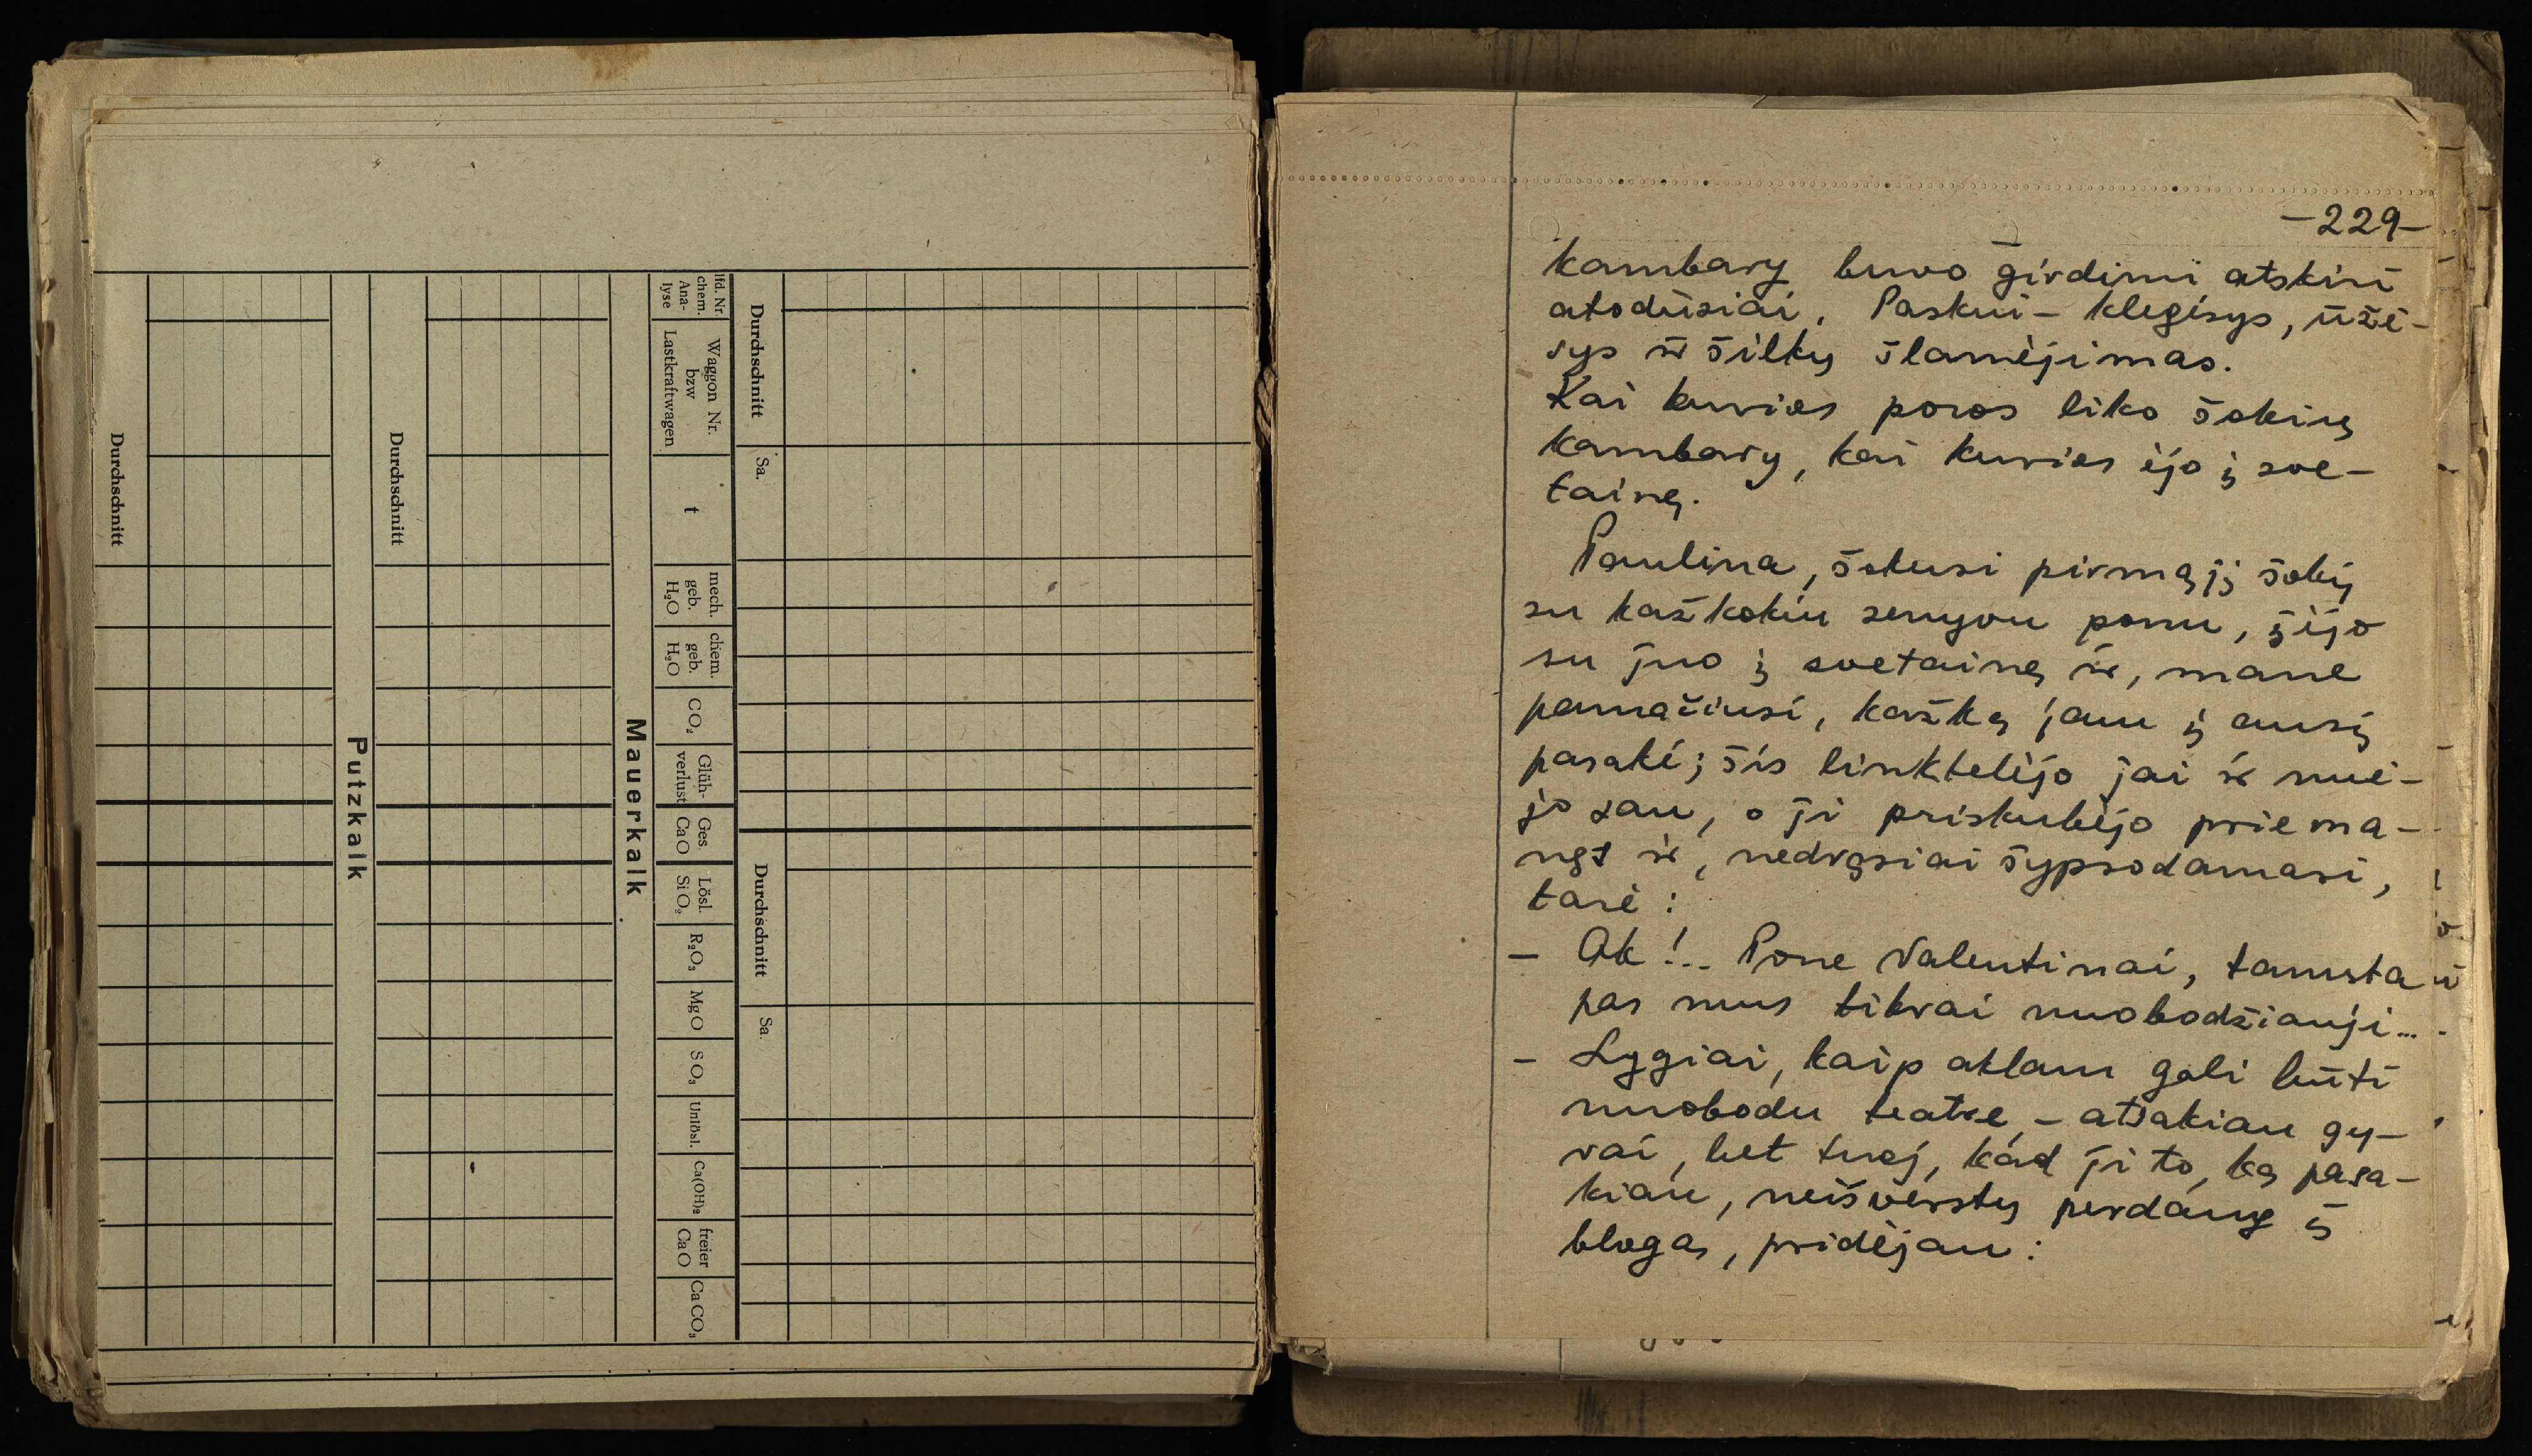 Durchschnitt
Sa.
Durchschnitt
Sa.
lfd. Nr.
chem.
Ana-
lyse
Waggon Nr.
bzw
Lastkraftwagen
t
mech.
geb.
H₂O
chem.
geb.
H₂O
CO₂
Glüh-
verlust
Ges.
CaO
Lösl.
SiO₂
R₂O₃
MgO
SO₃
Unlösl.
Ca(OH)₂
freier
CaO
CaCO₃
Mauerkalk
Durchschnitt
Putzkalk
Durchschnitt
—229—
kambary buvo girdimi atskiri
atodūsiai. Paskui – klegėsys, ūžė-
sys ir šilkų šlamėjimas.
Kai kurios poros liko šokių
kambary, kai kurios ėjo į sve-
tainę.
Paulina, šokusi pirmąjį šokį
su kažkokiu senyvu ponu, įėjo
su juo į svetainę ir, mane
pamačiusi, kažką jam į ausį
pasakė; šis linktelėjo jai ir nuė-
jo sau, o ji priskubėjo prie ma-
nęs ir, nedrąsiai šypsodamasi,
tarė:
– Ak!.. Pone Valentinai, tamsta
pas mus tikrai nuobodžiauji...
– Lygiai, kaip aklam gali būti
nuobodu teatre, – atsakiau gy-
vai, bet tuoj, kad ji to, ką pasa-
kiau, neišverstų perdaug į
blogą, pridėjau: